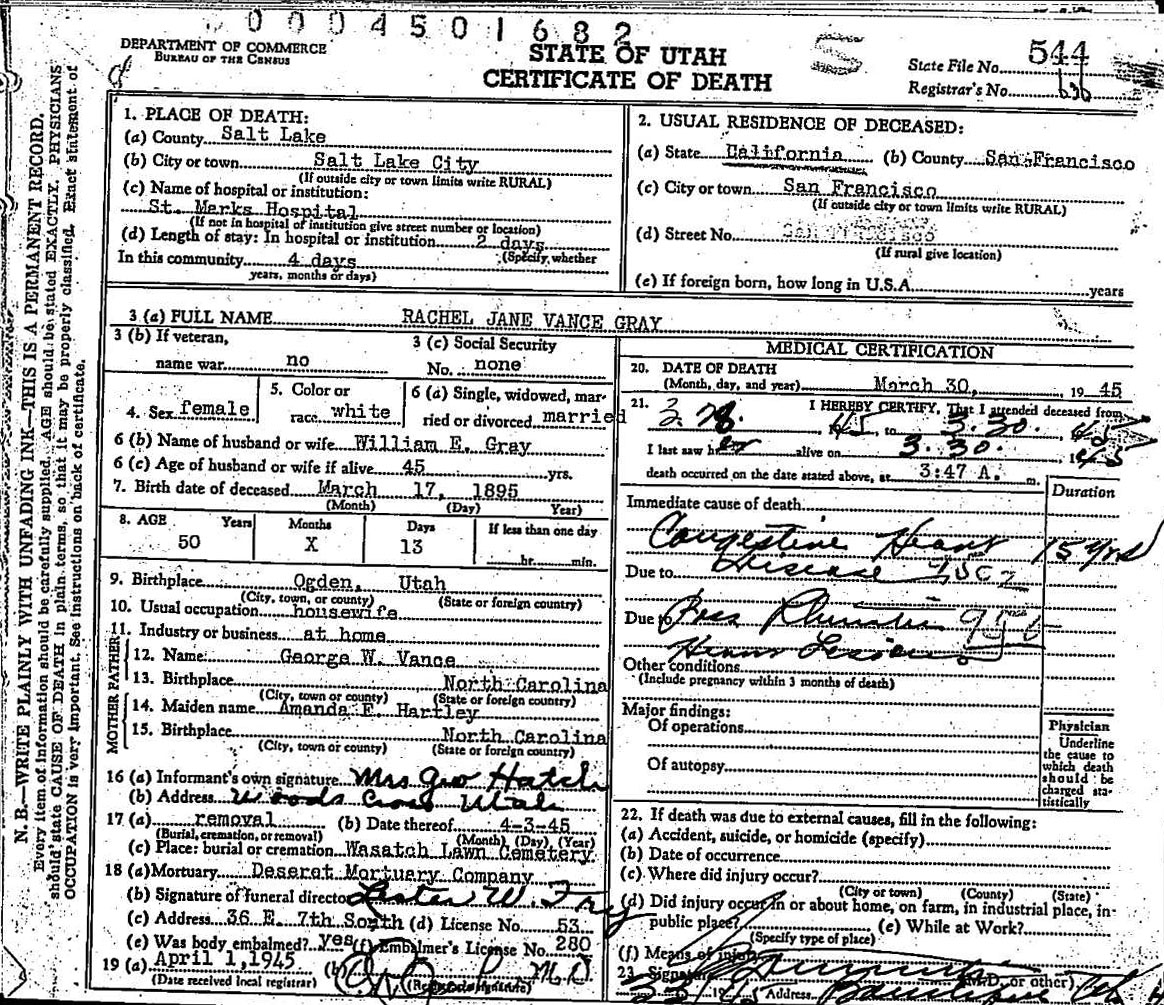 0004501682
DEPARTMENT OF COMMERCE
BUREAU OF THE CENSUS
STATE OF UTAH
CERTIFICATE OF DEATH
S
State File No. 544
Registrar's No. 636
N. B.—WRITE PLAINLY WITH UNFADING INK—THIS IS A PERMANENT RECORD.
Every item of information should be carefully supplied. AGE should be stated EXACTLY. PHYSICIANS
should state CAUSE OF DEATH in plain terms, so that it may be properly classified. Exact statement of
OCCUPATION is very important. See instructions on back of certificate.
1. PLACE OF DEATH:
(a) County Salt Lake
(b) City or town Salt Lake City
(If outside city or town limits write RURAL)
(c) Name of hospital or institution:
St. Marks Hospital
(If not in hospital or institution give street number or location)
(d) Length of stay: In hospital or institution 2 days
(Specify whether
In this community 4 days
years, months or days)
2. USUAL RESIDENCE OF DECEASED:
(a) State California (b) County San Francisco
(c) City or town San Francisco
(If outside city or town limits write RURAL)
(d) Street No. San Francisco
(If rural give location)
(e) If foreign born, how long in U.S.A. years
3 (a) FULL NAME RACHEL JANE VANCE GRAY
3 (b) If veteran,
name war no
3 (c) Social Security
No. none
4. Sex female
5. Color or
race white
6 (a) Single, widowed, mar-
ried or divorced married
6 (b) Name of husband or wife William E. Gray
6 (c) Age of husband or wife if alive 45 yrs.
7. Birth date of deceased March 17, 1895
(Month) (Day) Year)
8. AGE Years Months Days If less than one day
50 X 13 hr. min.
9. Birthplace Ogden, Utah
(City, town, or county) (State or foreign country)
10. Usual occupation housewife
11. Industry or business at home
FATHER
12. Name: George W. Vance
13. Birthplace North Carolina
(City, town or county) (State or foreign country)
MOTHER
14. Maiden name Amanda E. Hartley
15. Birthplace North Carolina
(City, town or county) (State or foreign country)
16 (a) Informant's own signature Mrs Geo Hatch
(b) Address Woods Cross Utah
17 (a) removal (b) Date thereof 4-3-45
(Burial, cremation, or removal) (Month) (Day) (Year)
(c) Place: burial or cremation Wasatch Lawn Cemetery
18 (a) Mortuary Deseret Mortuary Company
(b) Signature of funeral director Lester W. Fry
(c) Address 36 E. 7th South (d) License No. 53
(e) Was body embalmed? yes (f) Embalmer's License No. 280
19 (a) April 1, 1945 (b) M.D.
(Date received local registrar) (Registrar's signature)
MEDICAL CERTIFICATION
20. DATE OF DEATH
(Month, day, and year) March 30, 19 45
21. I HEREBY CERTIFY, That I attended deceased from
3. 28. 1945, to 3. 30. , 1945
I last saw her alive on 3. 30. , 1945
death occurred on the date stated above, at 3:47 A. m.
Duration
Immediate cause of death
Congestive Heart 15 yrs
Disease
Due to
Due to
Heart Lesion
Other conditions
(Include pregnancy within 3 months of death)
Major findings:
Of operations
Of autopsy
Physician
Underline
the cause to
which death
should be
charged sta-
tistically
22. If death was due to external causes, fill in the following:
(a) Accident, suicide, or homicide (specify)
(b) Date of occurrence
(c) Where did injury occur?
(City or town) (County) (State)
(d) Did injury occur in or about home, on farm, in industrial place, in-
public place? (e) While at Work?
(Specify type of place)
(f) Means of injury
23. Signature (M.D. or other)
Address